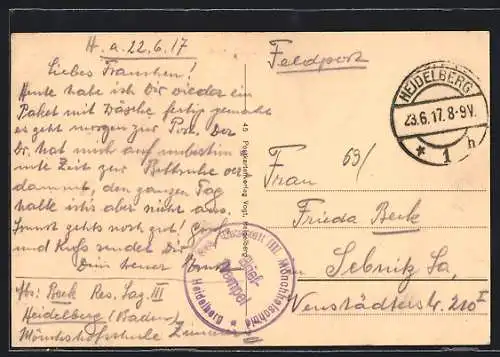 H. a. 22.6.17
Liebes Frauchen!
Heute habe ich Dir wieder ein
Paket mit Wäsche fertig gemacht
es geht morgen zur Post. Der
Dr. hat mich auf unbestim
mte Zeit zur Bettruhe ver
dammt, den ganzen Tag
halte ich's aber nicht aus.
Sonst gehts noch gut! Gruß
und Kuss sendet Dir
Dein treuer
Abs: Beck Res. Laz. III
Heidelberg (Baden)
Mönchhofschule
45 Postkartenverlag Vogt, Heidelberg
Feldpost
HEIDELBERG
23.6.17. 8-9V.
* 1 h
Frau
Frieda Beck
Sebnitz Sa.
Neustädterstr. 210 I
Res. Lazarett III Mönchhofschule
Brief-
stempel
Heidelberg